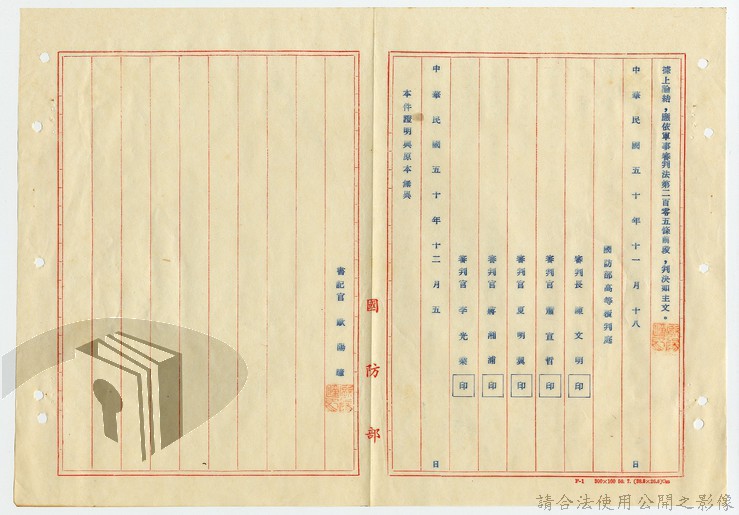 據上論結，應依軍事審判法第二百零五條前段，判決如主文。
中華民國五十年十一月十八日
國防部高等覆判庭
審判長 陳文明 印
審判官 蕭宣哲 印
審判官 夏明翼 印
審判官 蔣湘浦 印
審判官 李光榮 印
中華民國五十年十二月五日
本件證明與原本無異
書記官
國防部
F-1
請合法使用公開之影像